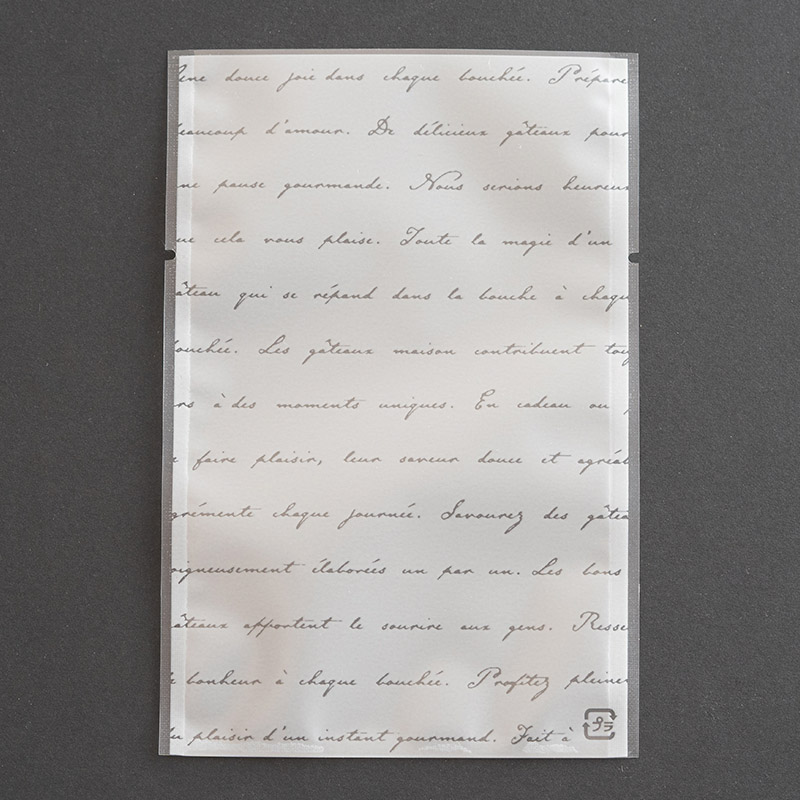 Une douce joie dans chaque bouchée. Prépare
beaucoup d'amour. De délicieux gâteaux pour
ne pause gourmande. Nous serions heureux
ue cela vous plaise. Toute la magie d'un
âteau qui se répand dans la bouche à chaqu
bouchée. Les gâteaux maison contribuent touj
rs à des moments uniques. En cadeau ou p
e faire plaisir, leur saveur douce et agréab
grémente chaque journée. Savourez des gâtea
oigneusement élaborés un par un. Les bons
âteaux apportent le sourire aux gens. Resse
e bonheur à chaque bouchée. Profitez pleinem
du plaisir d'un instant gourmand. Fait à
プラ